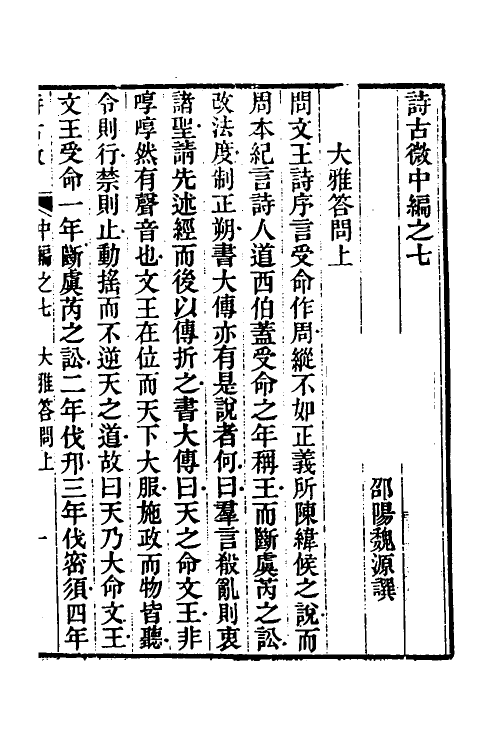 詩古微中編之七
邵陽魏源譔
大雅答問上
問文王詩序言受命作周縱不如正義所陳緯候之說而
周本紀言詩人道西伯蓋受命之年稱王而斷虞芮之訟
改法度制正朔書大傳亦有是說者何曰羣言殽亂則衷
諸聖請先述經而後以傳折之書大傳曰天之命文王非
啍啍然有聲音也文王在位而天下大服施政而物皆聽
令則行禁則止動搖而不逆天之道故曰天乃大命文王
文王受命一年斷虞芮之訟二年伐邘三年伐密須四年
中編之七 大雅答問上 一